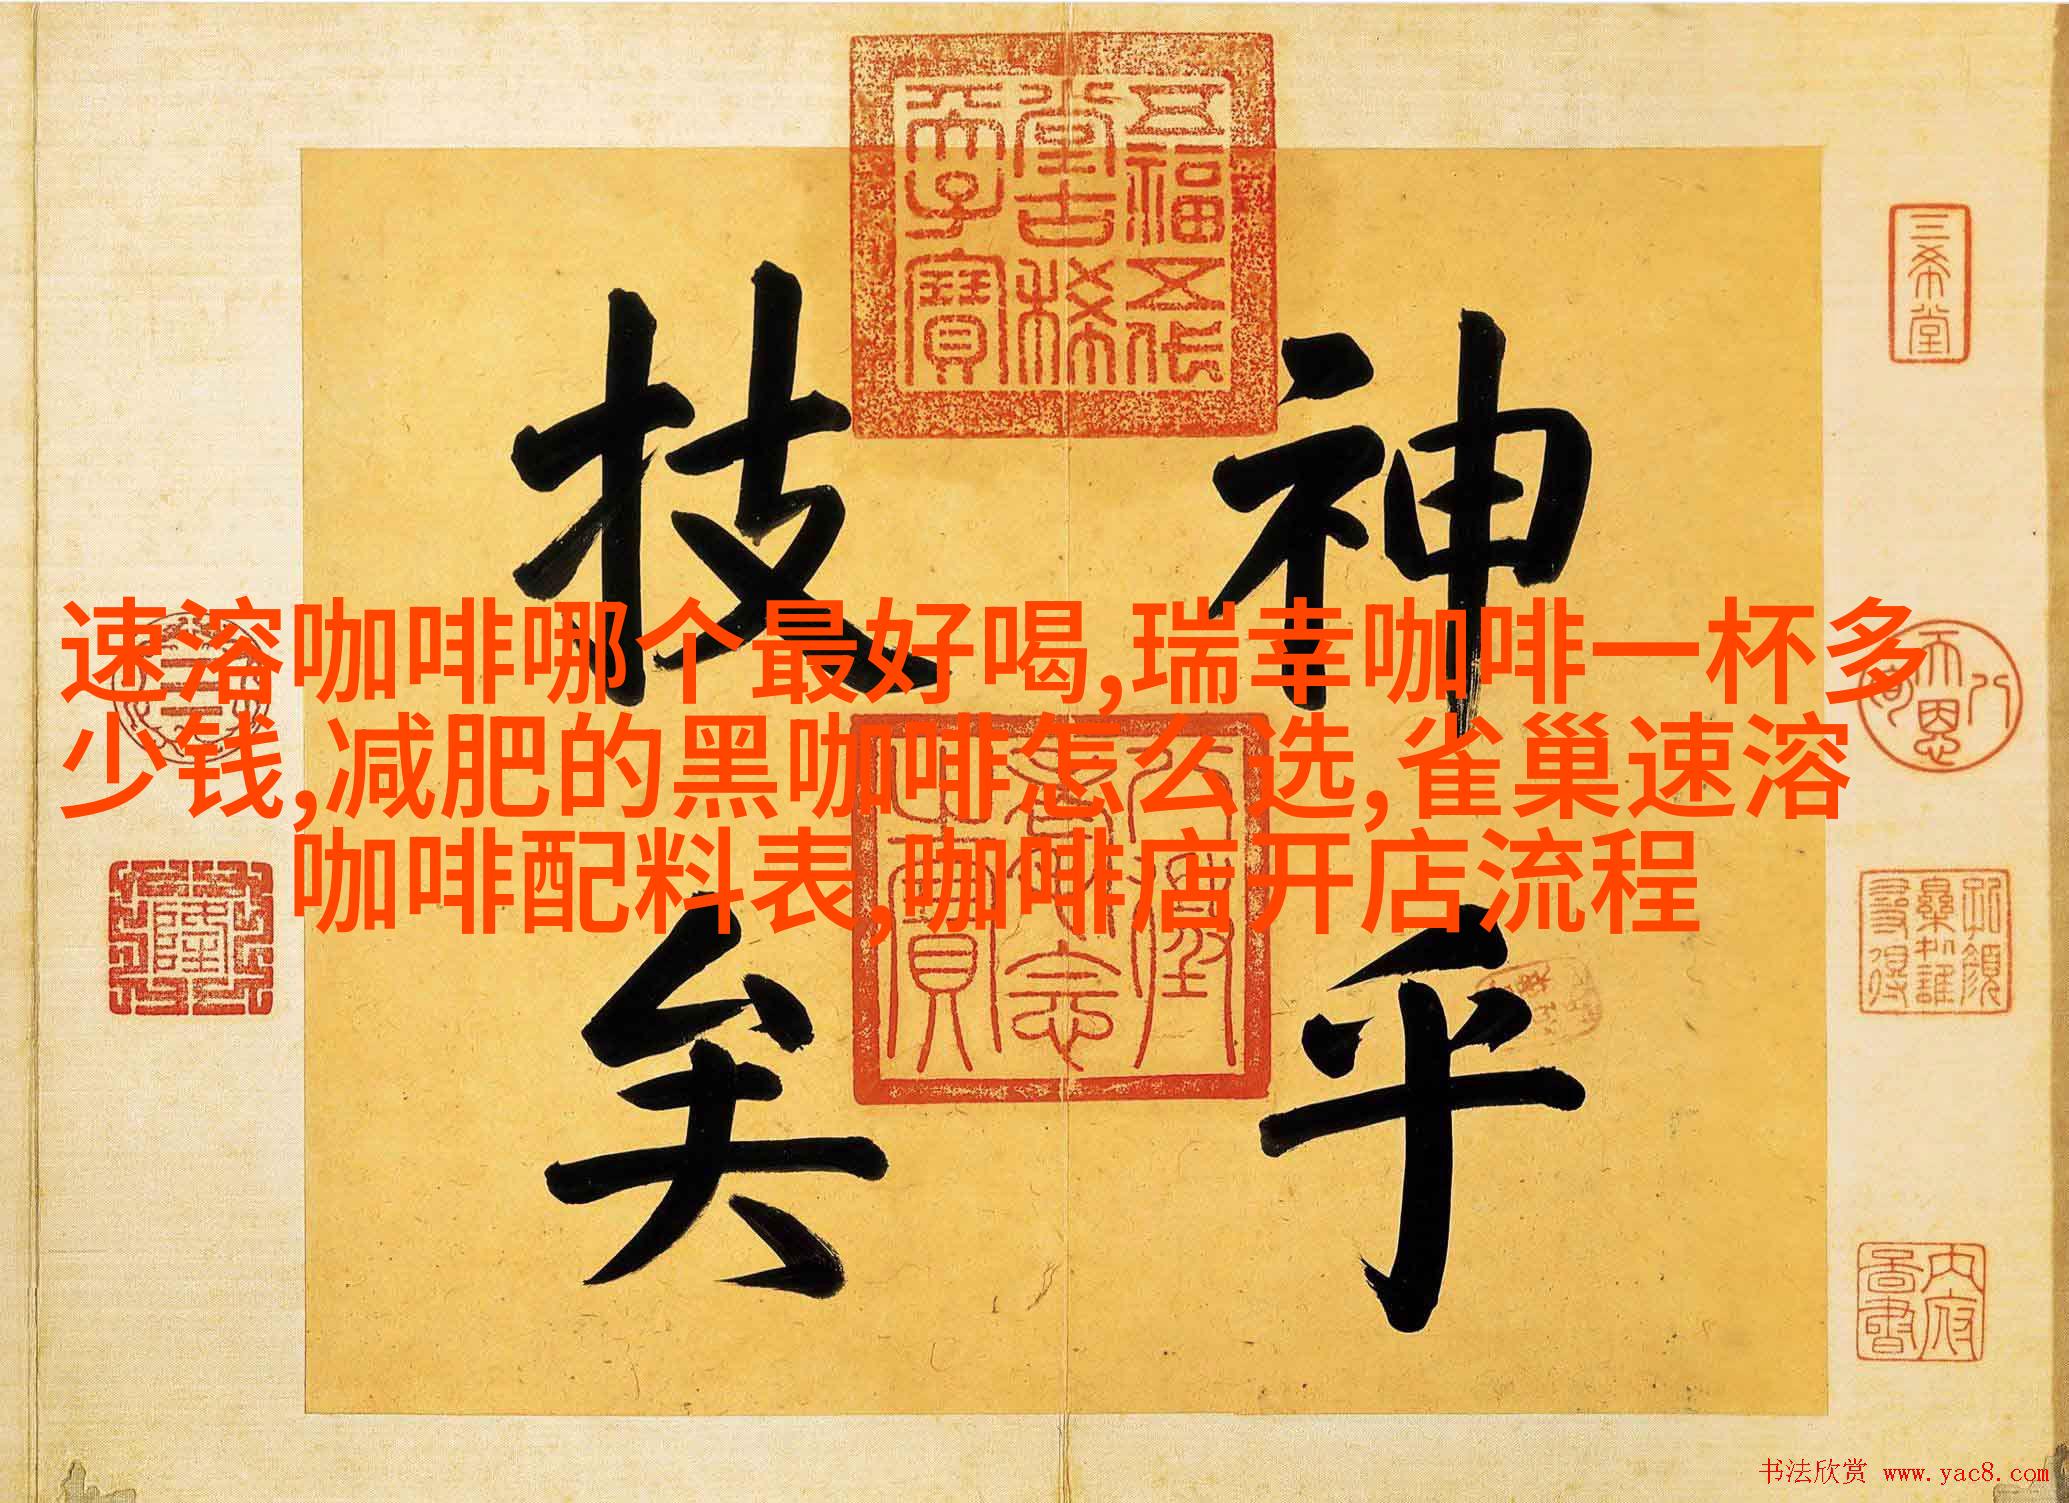 神乎
技矣
五福五代
堂古稀
天子寶
三希堂
八
天恩
乾隆
内府
書
速溶咖啡哪个最好喝,瑞幸咖啡一杯多
少钱,减肥的黑咖啡怎么选,雀巢速溶
咖啡配料表,咖啡店开店流程
书法欣赏 www.yac8.com